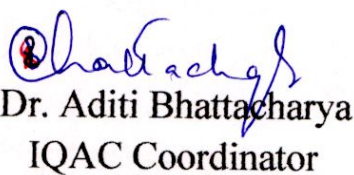 Bhattacharya
Dr. Aditi Bhattacharya
IQAC Coordinator